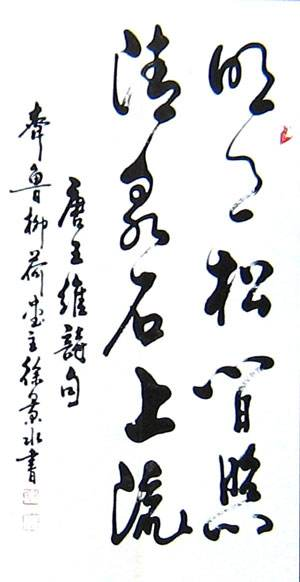 明月松间照
清泉石上流
唐王维詩句
齊鲁柳荷堂主徐景水書